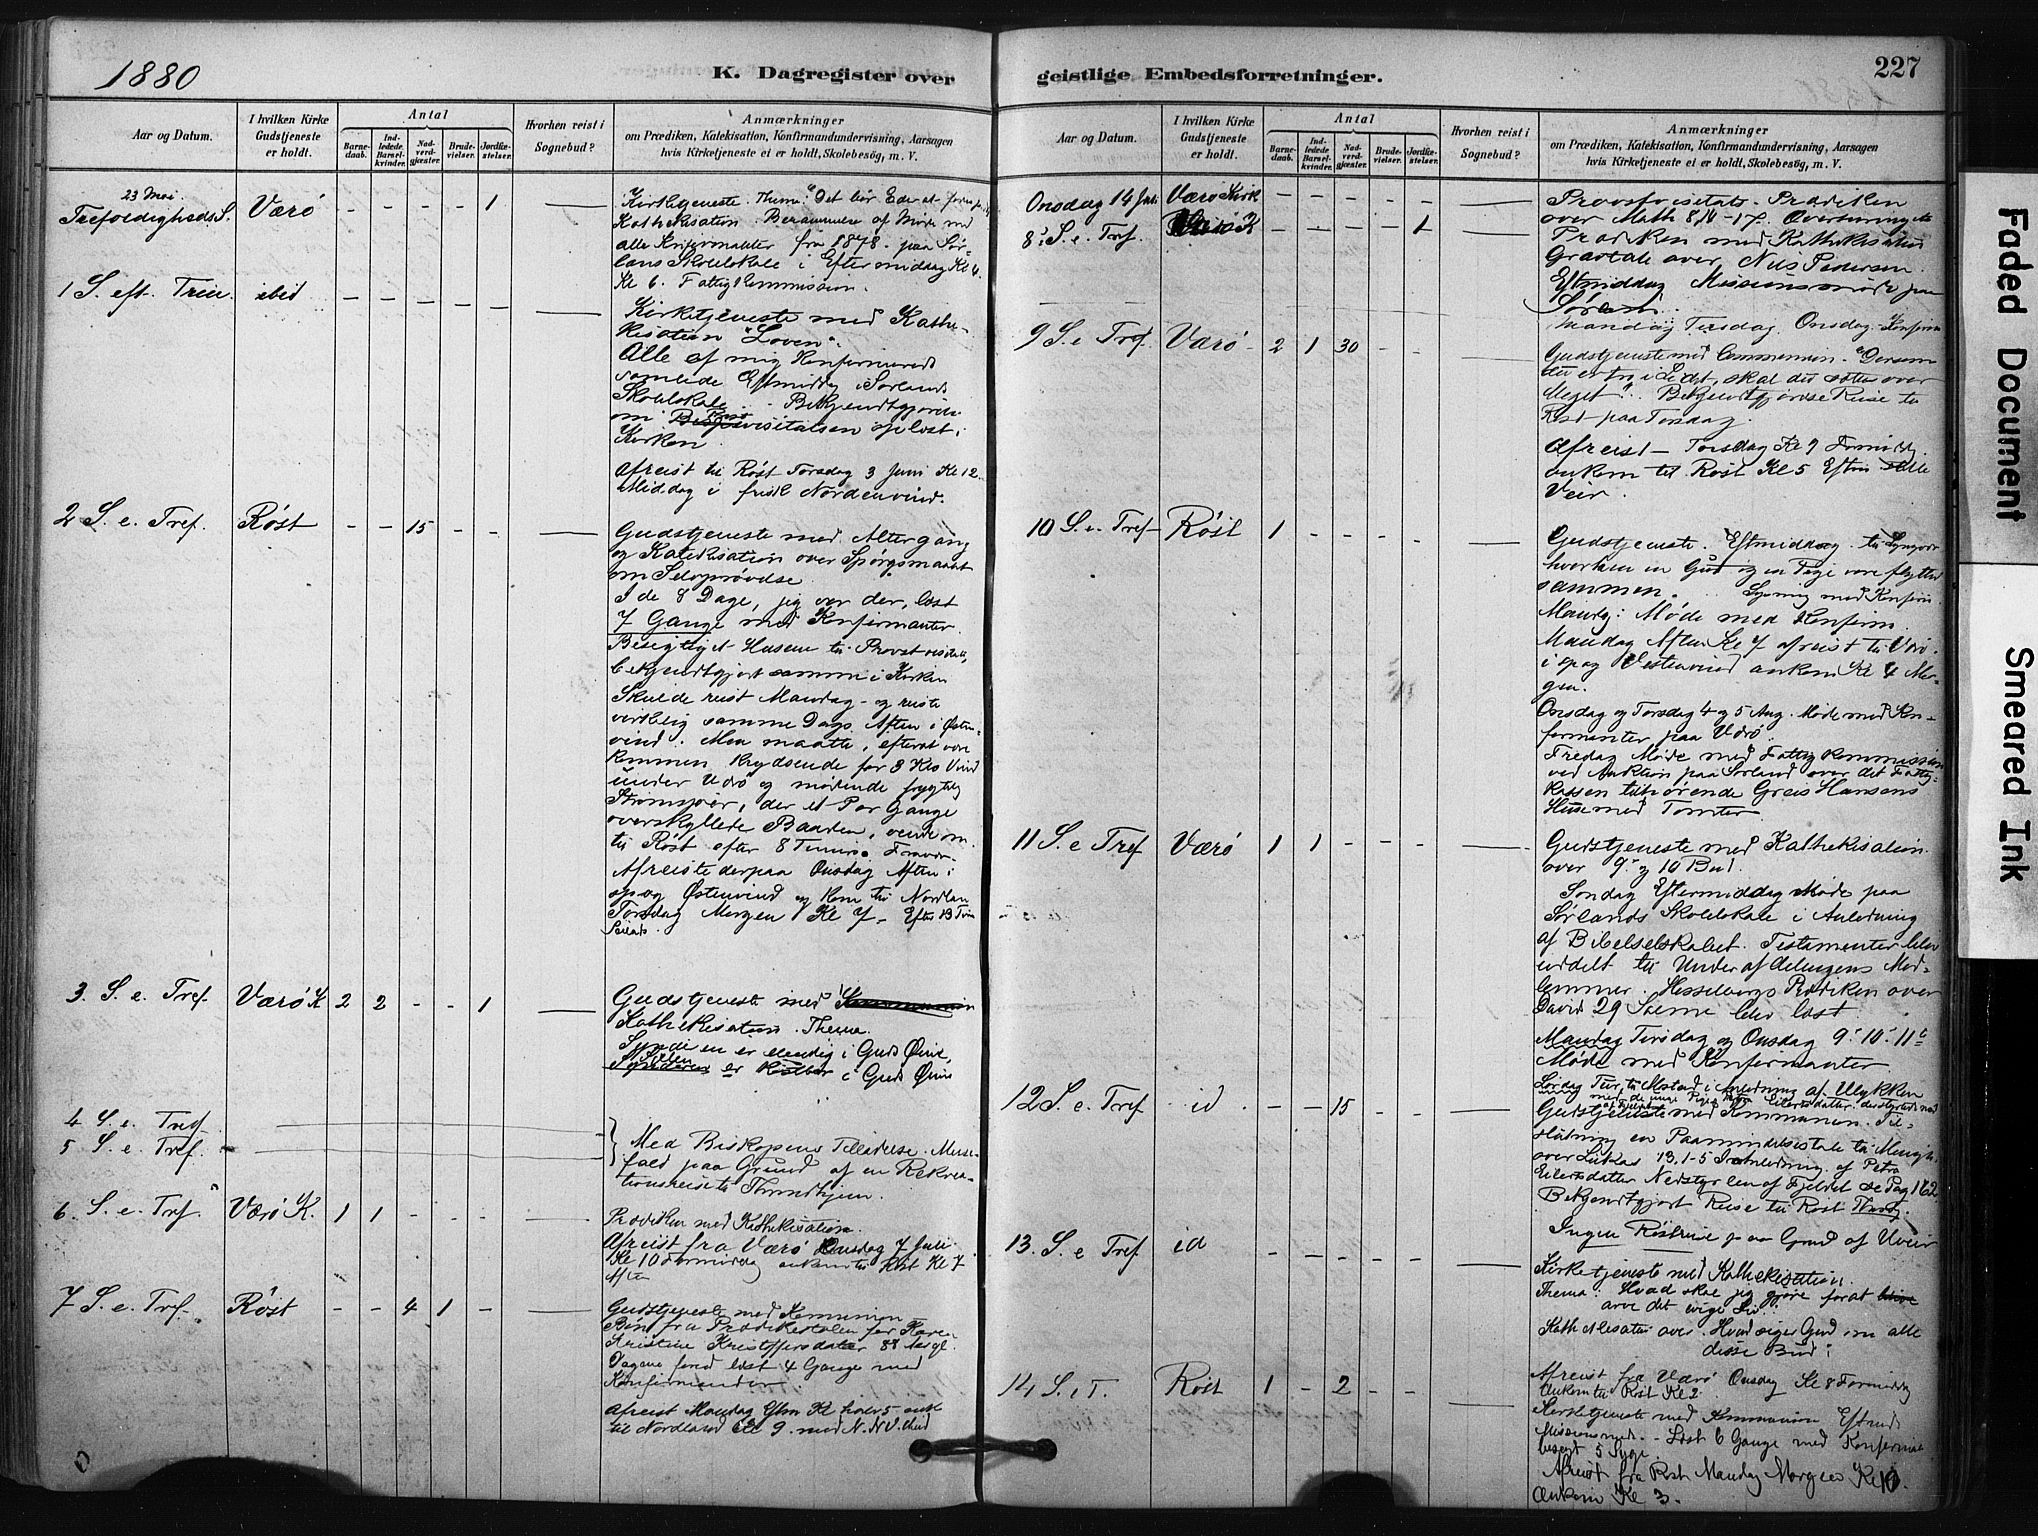 1880
K. Dagregister over
Aar og Datum.
I hvilken Kirke Gudstjeneste er holdt.
Antal
Barnedaab.
Indledede Barselkvinder.
Nadverdgjæster.
Brudevielser.
Jordfæstelser.
Hvorhen reist i Sognebud?
Anmærkninger
om Prædiken, Katekisation, Konfirmandundervisning, Aarsagen
hvis Kirketjeneste ei er holdt, Skolebesøg, m. V.
23 Mai
Trefoldigheds S. Værø - - - - 1
Kirketjeneste. Thema: "Det bør Eder at
Kathekisation. Berammelse af Møde med
alle Konfirmanter fra 1878 paa Sør-
lans Skolelokale i Eftermiddag Kl 4.
Kl 6. Fattigkommission.
1 S. eft. Trin. ibid - - - - -
Kirketjeneste med Kathe-
kisation "Loven".
Alle af mig Konfirmerede
samlede Eftmiddg i Sørlands
Skolelokale. Bekjendtgjørelse
om visitatsen oplæst i
Kirken.
Afreist til Røst Torsdag 3 Juni Kl 12
Middag i frisk Nordenvind.
2 S. e. Tref. Røst - - 15 - -
Gudstjeneste med Altergang
og Katekisation over Spørgsmaalet
om Selvprøvelse.
I de 8 Dage, jeg var der, læst
7 Gange med Konfirmanter.
Besigtiget Husene til
bekjendtgjort samme i Kirken
Skulde reist Mandag - og reiste
virkelig samme Dags Aften i Østen-
vind. Men maatte, efterat være
kommen krydsende for 3 Kls Vind
under Værø og mødende frygtelig
Strømsjøer, der et Par Gange
overskyllede Baaden, vende om
til Røst efter 8 Timers Fravær.
Afreiste derpaa Onsdag Aften i
spag Østenvind og kom til Nordlan
Torsdag Morgen Kl 7. Efter 13 Tim
Seilads.
3. S. e. Tref. Værø K 2 2 - - 1
Gudstjeneste med
Kathekisation. Thema.
Synderen er elendig i Guds Øine,
Sjælen er kostbar i Guds Øine
4 S. e. Tref
5 S. e. Tref.
Med Biskopens Tilladelse Messe-
fald paa Grund af en Rekrea-
tionsreise til Throndhjem.
6. S. e. Tref. Værø K. 1 1 - - -
Prædiken med Kathekisation.
Afreist fra Værø Onsdag 7 Juli
Kl 10 Formiddag ankom til Røst Kl 7
Aften
7 S. e. Tref. Røst - - 4 1 -
Gudstjeneste med Kommunion
Bøn fra Prædikestolen for Karen
Kristine Kristoffersdatter 88 Aar gl.
Dagene forud læst 4 Gange med
Konfirmander.
Afreist Mandag Eftm Kl halv 5 ank
til Nordland Kl 9. med N.N.V. Vind
geistlige Embedsforretninger.
227
Aar og Datum.
I hvilken Kirke Gudstjeneste er holdt.
Antal
Barnedaab.
Indledede Barselkvinder.
Nadverdgjæster.
Brudevielser.
Jordfæstelser.
Hvorhen reist i Sognebud?
Anmærkninger
om Prædiken, Katekisation, Konfirmandundervisning, Aarsagen
hvis Kirketjeneste ei er holdt, Skolebesøg, m. V.
Onsdag 14 Juli Værø Kirk - - - - -
Provstvisitats. Prædiken
over Math 8,14-17.
8. S. e. Tref. - - - - 1
Prædiken med Kathekisation
Gravtale over Nils Pedersen.
Eftmiddag Missionsmøde paa
Sørland.
Mandag Tirsdag. Onsdag. Konfirm
9 S. e Tref Værø 2 1 30 - -
Gudstjeneste med Communion. "Dersom
du er tro i Lidet, skal du sættes over
Meget". Bekjendtgjørelse Reise til
Røst paa Torsdag.
Afreist Torsdag Kl 9 Formiddg.
ankom til Røst Kl 5 Eftm stille
Veir.
10 S. e. Tref Røst 1 - - - -
Gudstjeneste. Eftmiddag til
hvorhen en Gut og en Pige vare flyttet
sammen.
Mandg: Møde med Konfirm.
Mandag Aften Kl 7 afreist til Værø
i spag Vestenvind ankom Kl 4 Mor-
gen.
Onsdag og Torsdag 4 og 5 Aug. Møde med Kon-
firmanter paa Værø.
Fredag Møde med Fattigkommission
ved Auktion paa Sørland over det Fattig-
kassen tilhørende Greis Hansens
Huse med Tomter
11 S. e Tref Værø 1 1 - - -
Gudstjeneste med Kathekisation
over 9. og 10 Bud.
Søndag Eftermiddag Møde paa
Sørlands Skolelokale i Anledning
af Bibelselskabet. Testamenter blev
uddelt til Underafdelingens Med-
lemmer. Hesselbergs Prædiken over
David 29 Salme blev læst
Mandag Tirsdag og Onsdag 9. 10. 11te
Møde med Konfirmanter
Lørdag Tur til Mostad i Anledning af Ulykken
12 S. e. Tref id - - 15 - -
Gudstjeneste med Kommunion. Til
Slutning en Paamindelsestale til Menigh.
over Lukas 13.1-5 I Anledning af Petra
Eilersdatter Nedstyrten af Fjeldet se Pag 162
Bekjendtgjort Reise til Røst Thorsdg.
Ingen Røstreise paa Grund af Uveir
13. S. e Tref id - - - - -
Kirketjeneste med Kathekisation.
Thema: Hvad skal jeg gjøre forat
arve det evige Liv.
Kathekisation over. Hvad siger Gud om alle
disse Bud?
Afreist fra Værø Onsdag Kl 8 Formiddg
Ankom til Røst Kl 2.
14 S. e T. Røst 1 - 2 - -
Kirketjeneste med Kommunion Eftmid
Missionsmød. - Læst 6 Gange med Konfirma
besøgt 5 Syge
Afreist fra Røst Mandag Morgen Kl 10.
Ankom Kl 3.
Faded Document
Smeared Ink